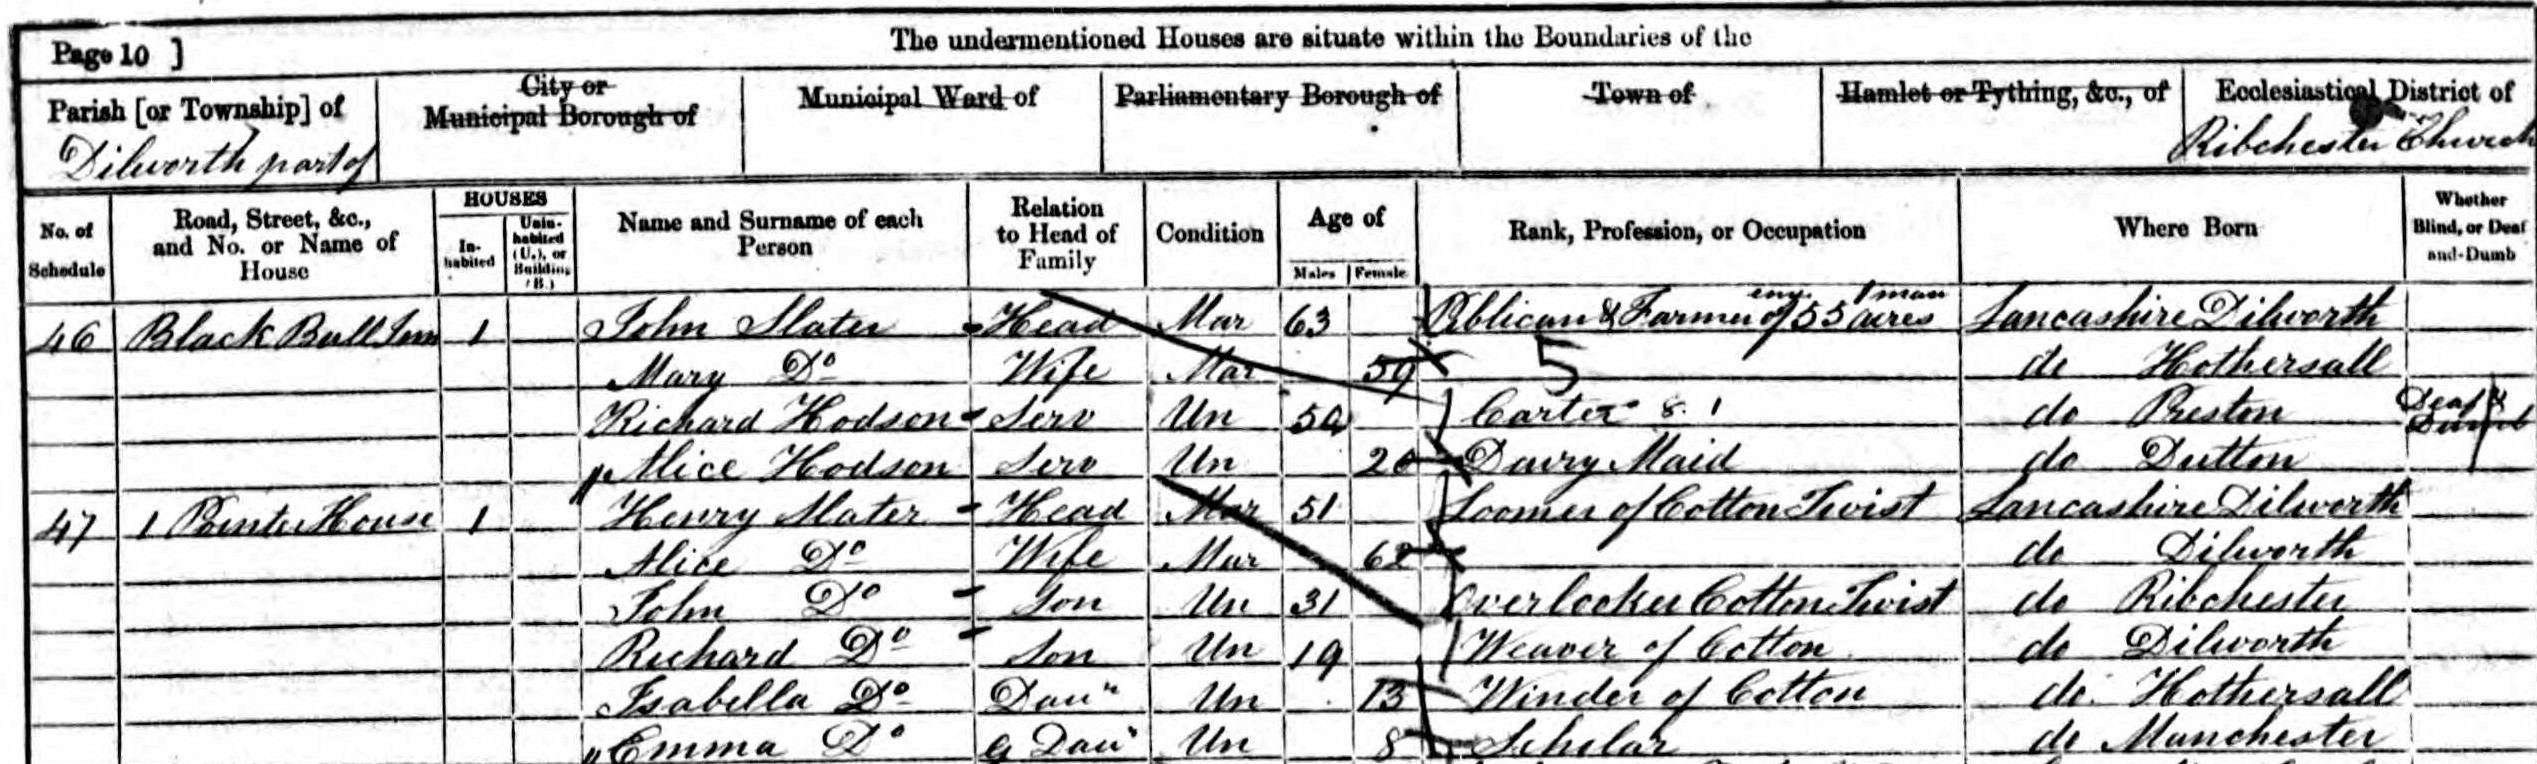 Page 10 ]
The undermentioned Houses are situate within the Boundaries of the
Parish [or Township] of
City or Municipal Borough of
Municipal Ward of
Parliamentary Borough of
Town of
Hamlet or Tything, &c., of
Ecclesiastical District of
Dilworth part of
Ribchester Church
No. of Schedule
Road, Street, &c., and No. or Name of House
HOUSES
In-habited
Unin-habited (U.), or Building (B.)
Name and Surname of each Person
Relation to Head of Family
Condition
Age of
Males
Female
Rank, Profession, or Occupation
Where Born
Whether Blind, or Deaf and-Dumb
46 Black Bull Inn 1 John Slater Head Mar 63 Publican & Farmer of 55 acres emp. 1 man Lancashire Dilworth
Mary Do Wife Mar 59 5 do Hothersall
Richard Hodson Serv Un 50 Carter do Preston Deaf & Dumb
Alice Hodson Serv Un 20 Dairy Maid do Dutton
47 1 House 1 Henry Slater Head Mar 51 Loomer of Cotton Twist Lancashire Dilworth
Alice Do Wife Mar 62 do Dilworth
John Do Son Un 31 Overlooker Cotton Twist do Ribchester
Richard Do Son Un 19 Weaver of Cotton do Dilworth
Isabella Do Daur Un 13 Winder of Cotton do Hothersall
Emma Do G Daur Un 8 Scholar do Manchester